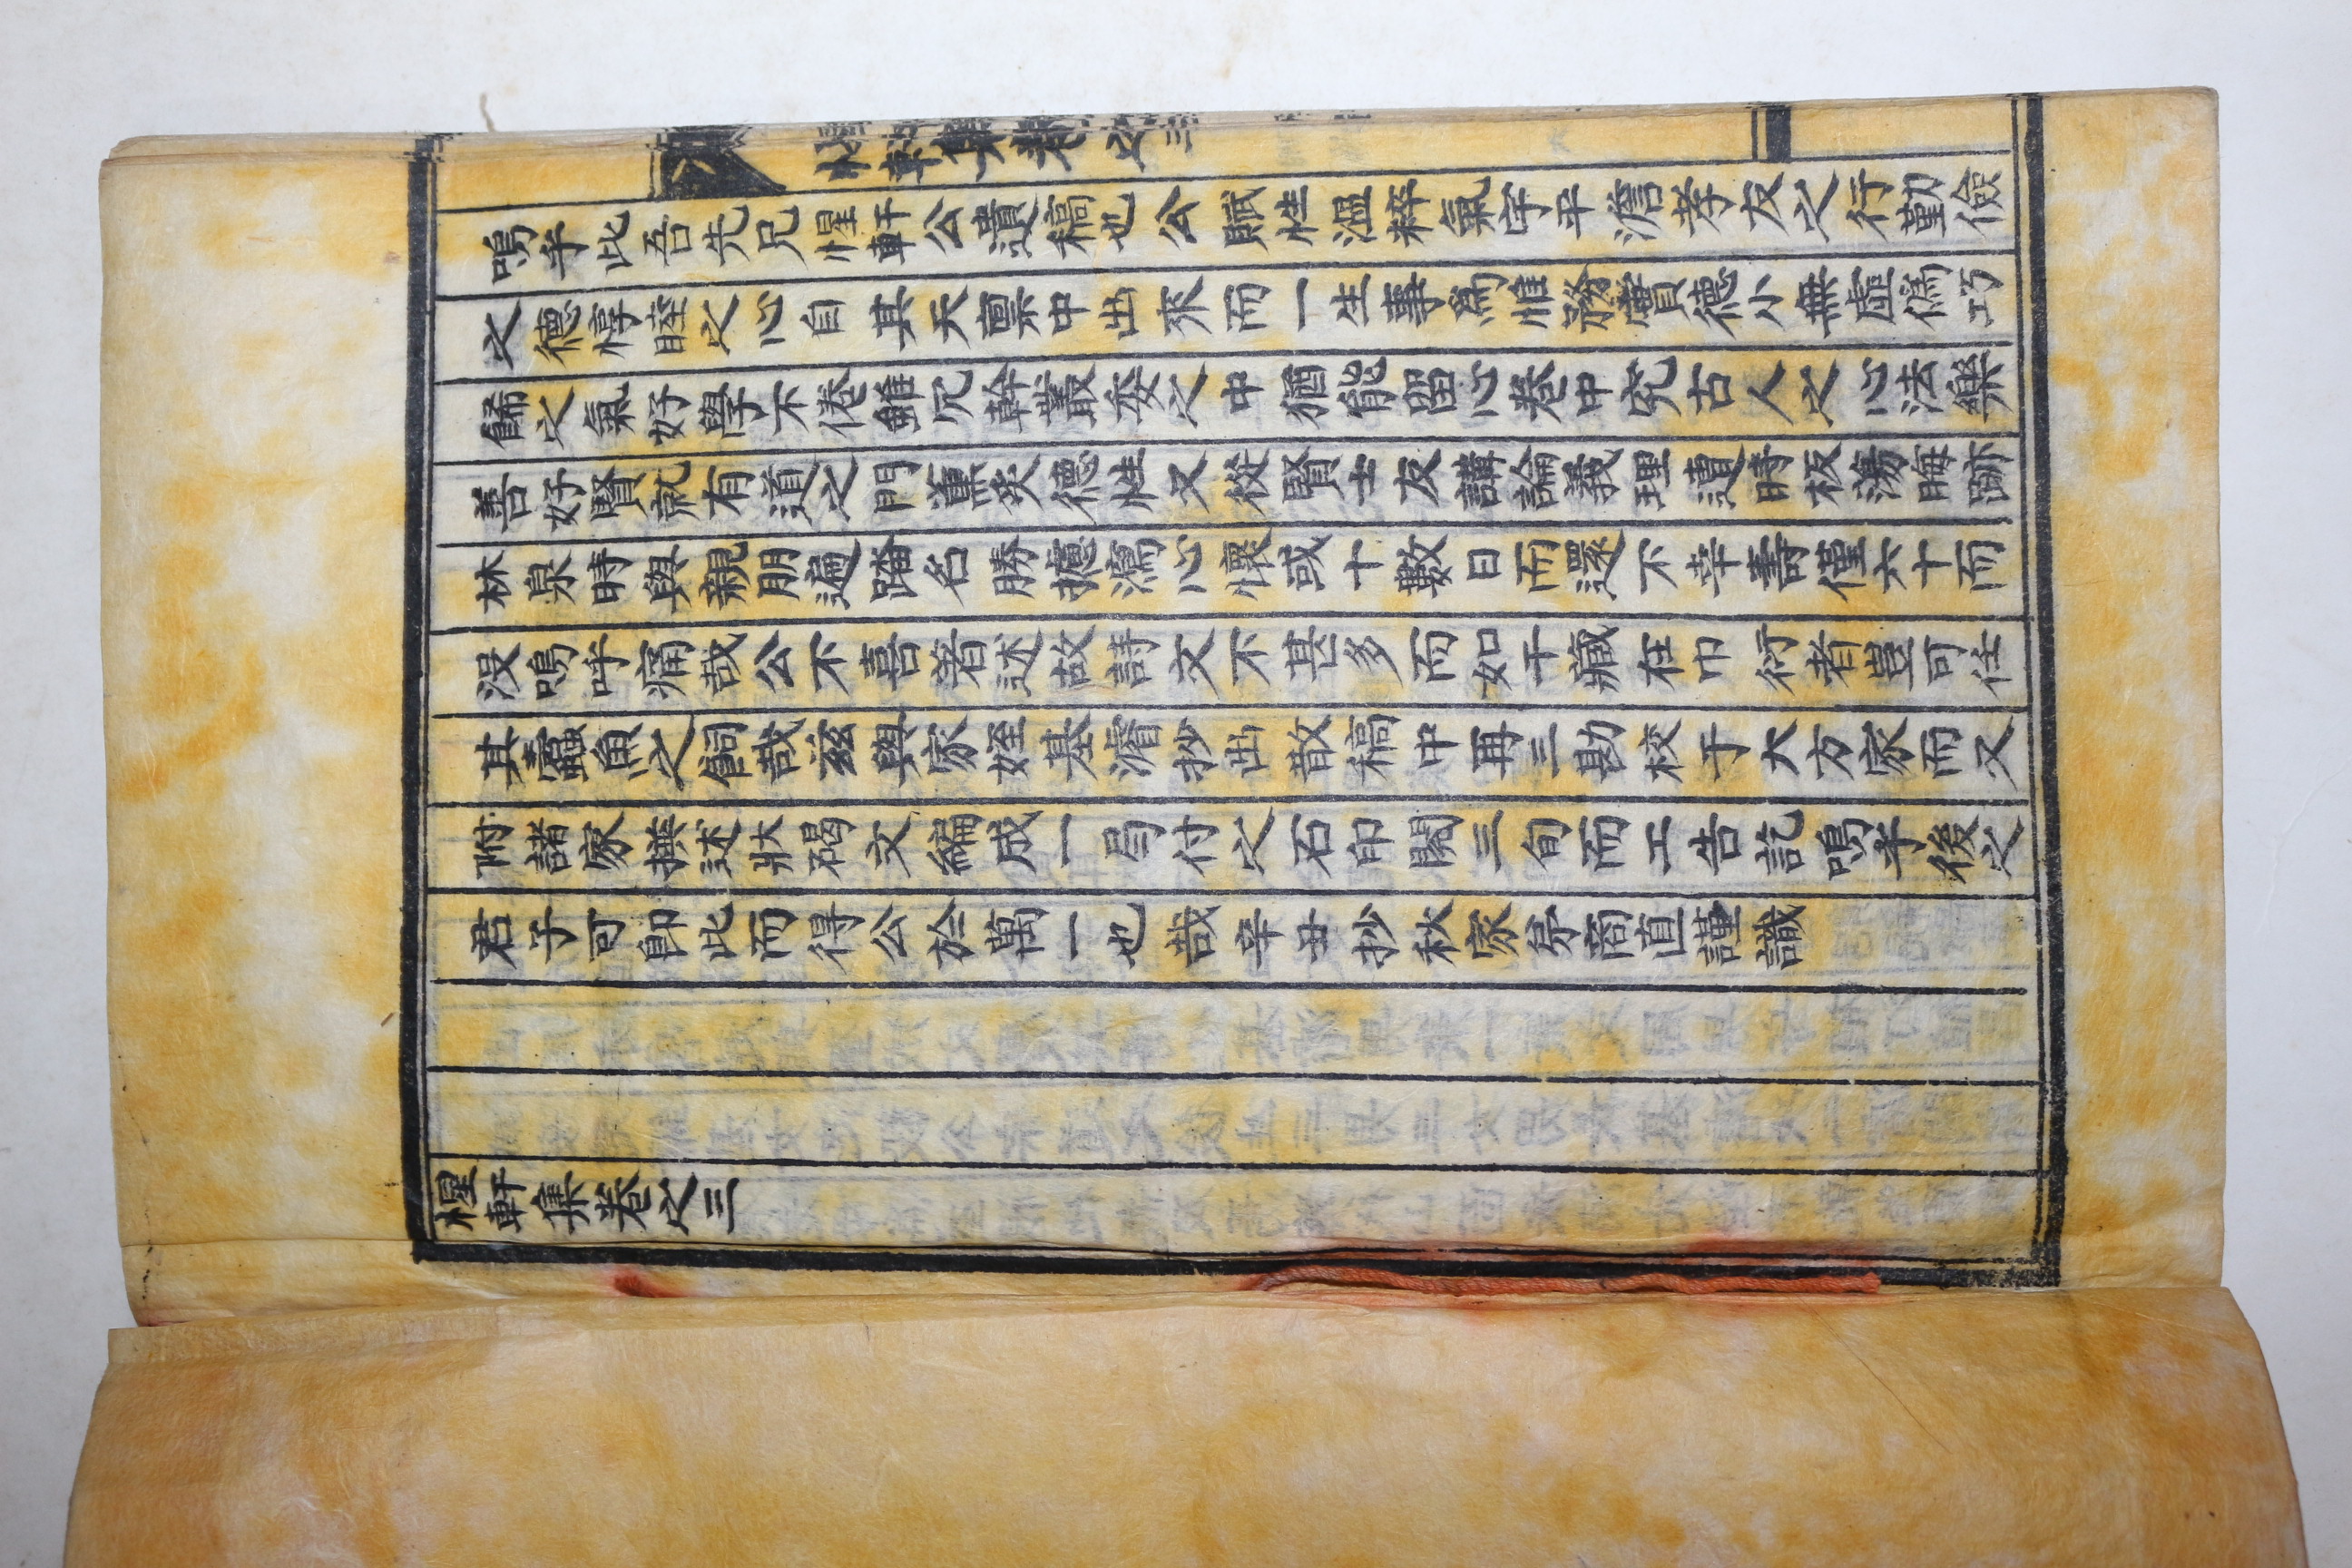 惺軒集卷之三
嗚乎此吾先兄惺軒公遺稿也公賦性溫粹氣宇平澹孝友之行勤儉
之德惇睦之心自其天禀中出來而一生事爲惟務實德小無虛僞巧
餙之氣好學不倦雖冗幹叢委之中猶能留心卷中究古人之心法樂
善好賢就有道之門薰炙德性又從賢士友講論義理遭時板蕩晦跡
林泉時與親朋遍踏名勝攄瀉心懷或十數日而還不幸壽僅六十而
沒嗚呼痛哉公不喜著述故詩文不甚多而如干藏在巾衍者豈可任
其蠹魚之飼哉玆與家姪基濬抄出散稿中再三勘校于大方家而又
附諸家撰述狀碣文編成一局付之石印閱三旬而工告訖嗚乎後之
君子可卽此而得公於萬一也哉辛丑抄秋家弟商直謹識
惺軒集卷之三